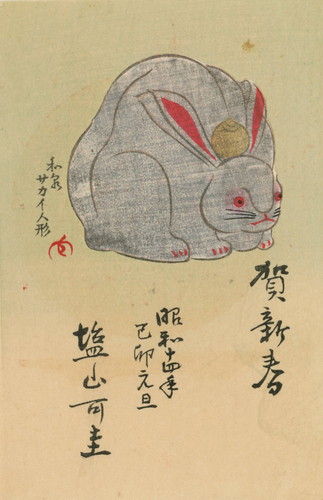 賀新春
昭和十四年
己卯元旦
塩山可圭
和泉
サカイ人形